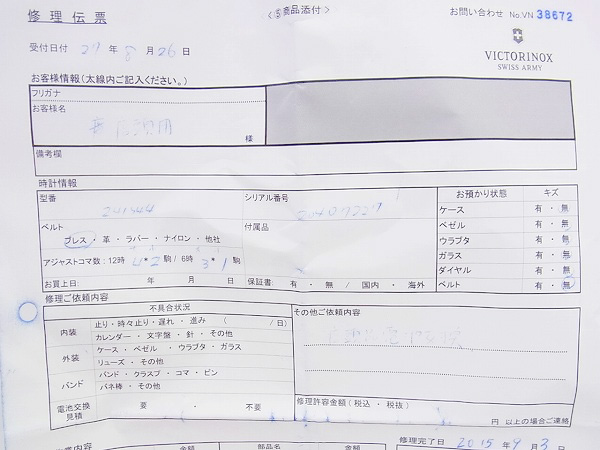 修理伝票
<商品添付>
お問い合わせ No.VN 38672
受付日付 27 年 8 月 26 日
VICTORINOX
SWISS ARMY
お客様情報(太線内ご記入ください。)
フリガナ
お客様名
様
備考欄
時計情報
型番 241544
シリアル番号
お預かり状態 キズ
ケース 有・無
ベルト
付属品
ベゼル 有・無
ブレス・革・ラバー・ナイロン・他社
ウラブタ 有・無
アジャストコマ数:12時 駒/6時 駒
ガラス 有・無
ダイヤル 有・無
お買上日: 年 月 日
保証書: 有・無/国内・海外
ベルト 有・無
修理ご依頼内容
不具合状況
その他ご依頼内容
内装 止り・時々止り・遅れ・進み ( /日)
カレンダー・文字盤・針・その他
外装 ケース・ベゼル・ウラブタ・ガラス
リューズ・その他
バンド バンド・クラスプ・コマ・ピン
バネ棒・その他
修理許容金額(税込・税抜)
電池交換 見積 要・不要
円 以上の場合ご連絡
修理完了日 2015年 9月 3日
業内容 金額 部品名 金額